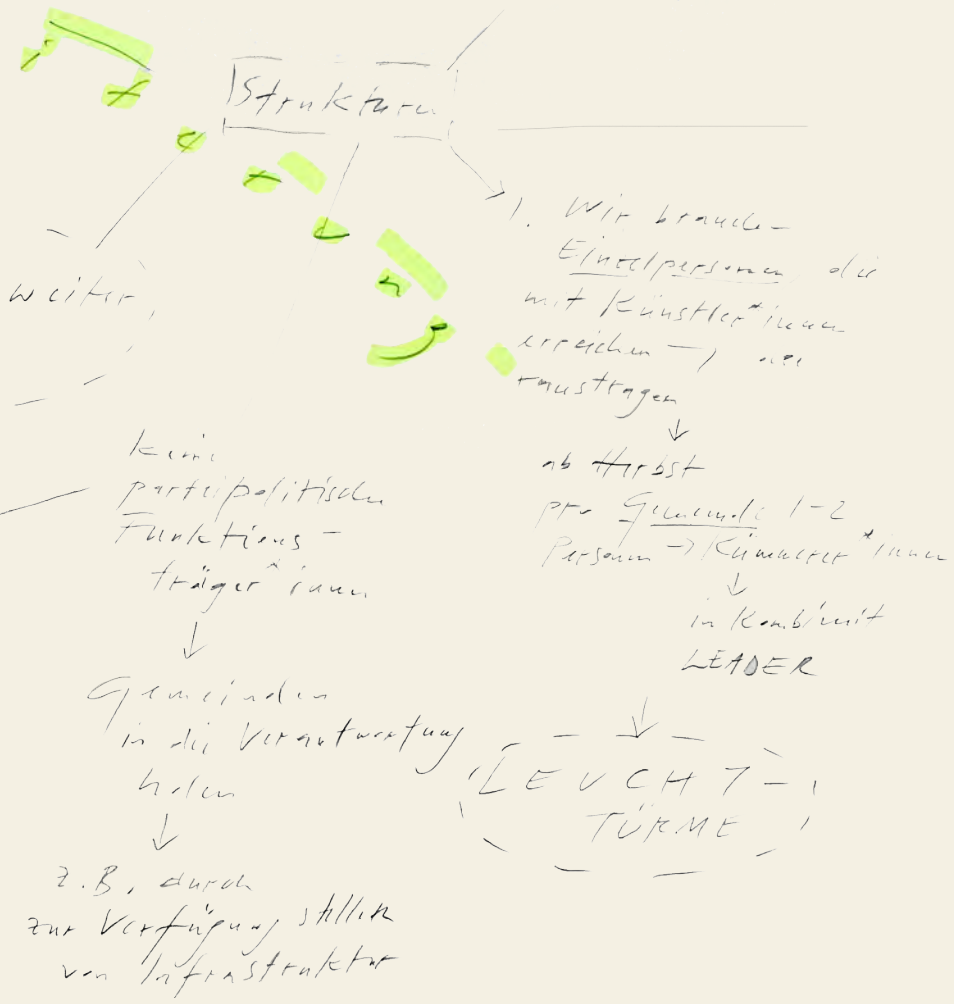 Strukturen
1. Wir brauchen
Einzelpersonen, die
mit Künstler*innen
erreichen →
raustragen
↓
ab Herbst
pro Gemeinde 1-2
Personen → Kümmerer*innen
↓
in Kombi mit
LEADER
↓
LEUCHT-
TÜRME
weiter,
keine
parteipolitische
Funktions-
träger*innen
↓
Gemeinden
in die Verantwortung
holen
↓
z.B. durch
zur Verfügung stellen
von Infrastruktur